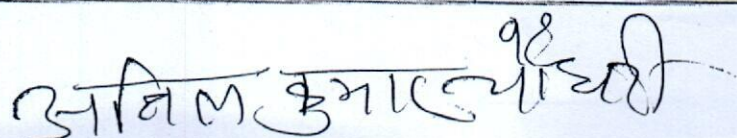 १४
अनिल कुमार चौधरी